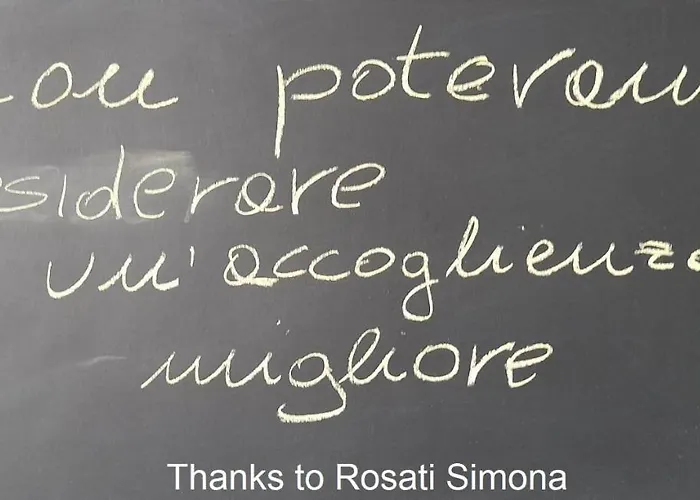 non poteram
siderare
un'accoglienza
migliore
Thanks to Rosati Simona